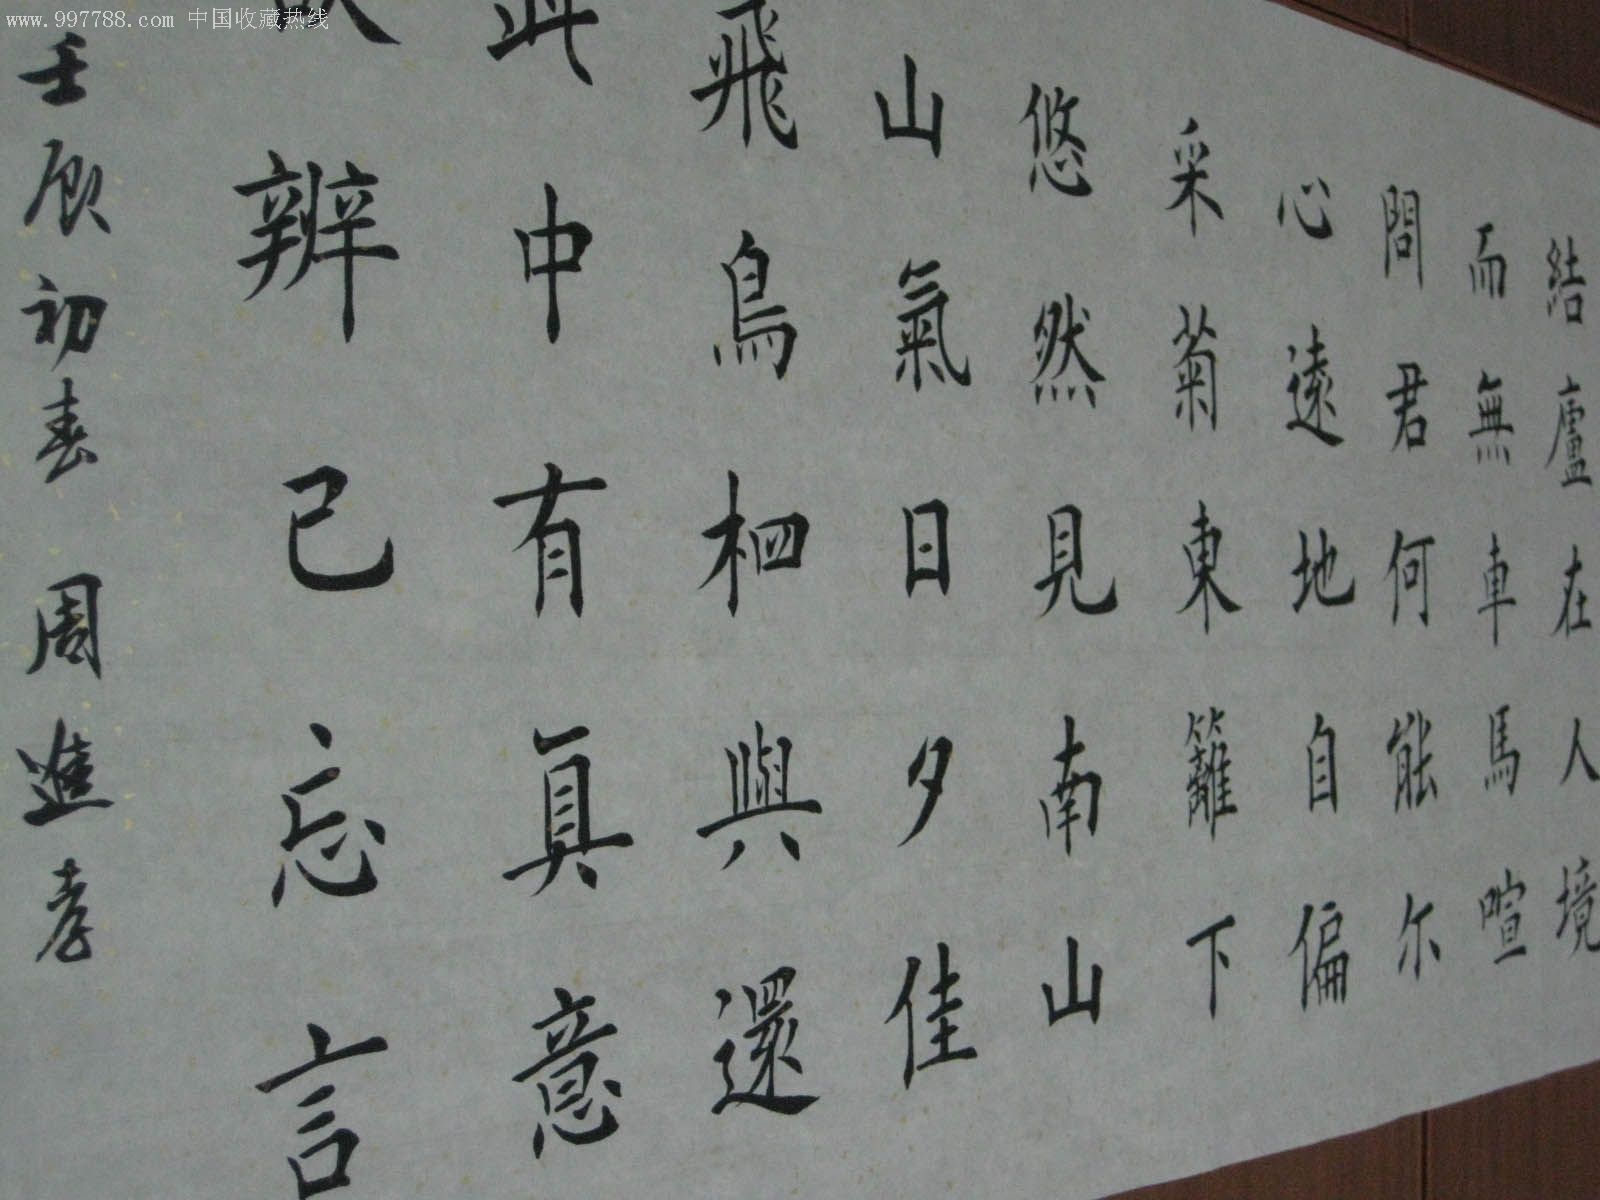 www.997788.com 中国收藏热线
結廬在人境
而無車馬喧
問君何能尔
心遠地自偏
采菊東籬下
悠然見南山
山氣日夕佳
飛鳥相與還
此中有真意
辨已忘言
壬辰初春 周進孝